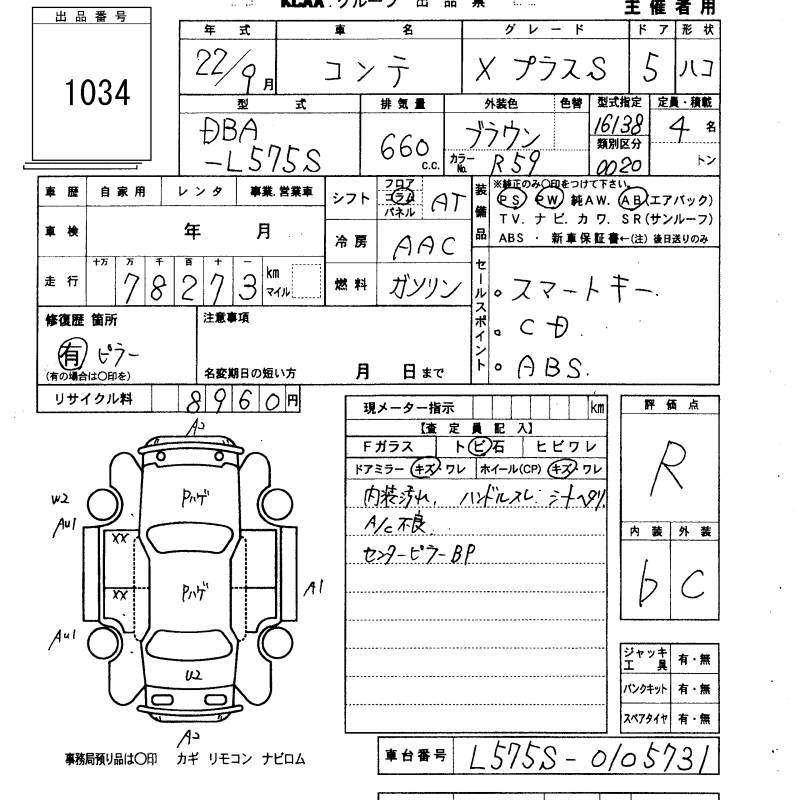 KLAA.グループ 出品票
主催者用
出品番号
1034
年式 車名 グレード ドア 形状
22/9月 コンテ X プラスS 5 ハコ
型式 排気量 外装色 色替 型式指定 定員・積載
DBA
-L575S
660 c.c.
ブラウン
カラーNo. R59
16138
類別区分
0020
4名
トン
車歴 自家用 レンタ 事業.営業車
車検 年 月
走行 十万 万 千 百 十 一
78273 km マイル
シフト フロア コラム パネル AT
冷房 AAC
燃料 ガソリン
装備品
※純正のみ○印をつけて下さい。
PS PW 純AW. AB(エアバック)
TV. ナビ. カワ. SR(サンルーフ)
ABS ・ 新車保証書←(注) 後日送りのみ
セールスポイント
。スマートキー.
。CD.
。ABS.
修復歴 箇所
有 ピラー
(有の場合は○印を)
注意事項
名変期日の短い方 月 日まで
リサイクル料 8960円
現メーター指示 km
【査定員記入】
Fガラス トビ石 ヒビワレ
ドアミラー キズ・ワレ ホイール(CP) キズ・ワレ
内装汚れ, ハンドルスレ. シートヘタリ.
A/C不良.
センターピラーBP
評価点
R
内装 外装
b C
ジャッキ工具 有・無
パンクキット 有・無
スペアタイヤ 有・無
A2
W2
Au1
XX
Pハゲ
XX
Pハゲ
A1
Au1
U2
A2
事務局預り品は○印 カギ リモコン ナビロム
車台番号 L575S-0105731